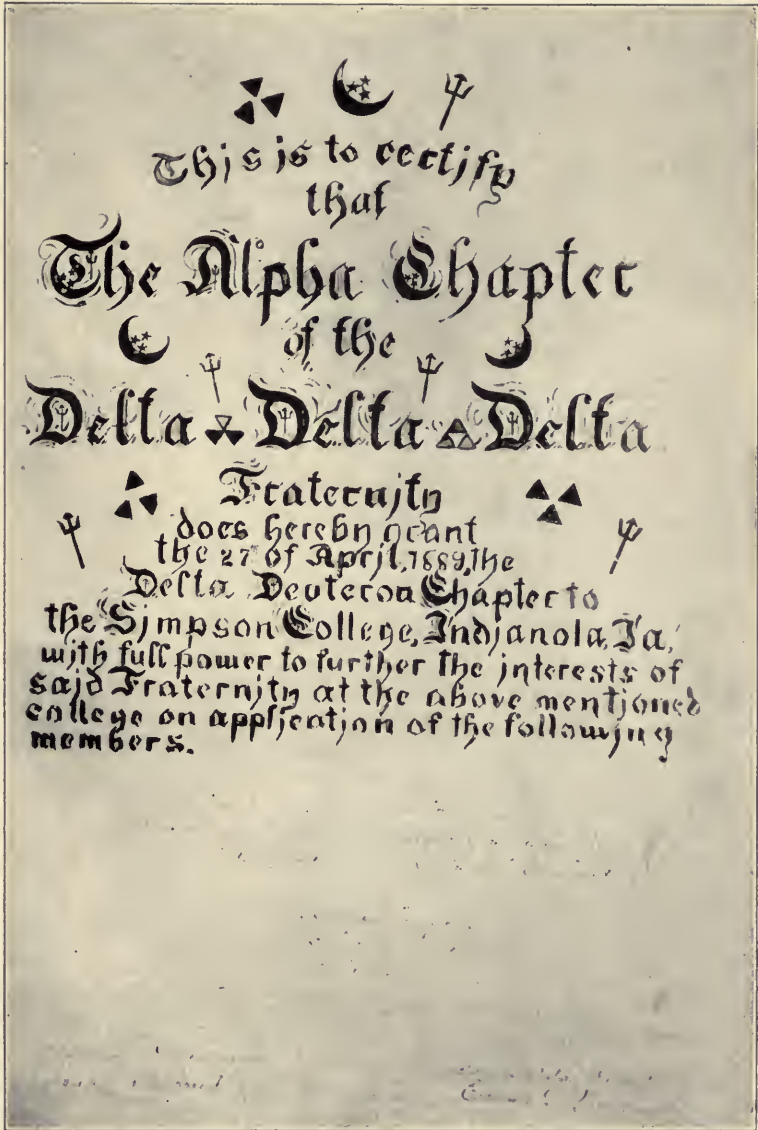 This is to certify
that
The Alpha Chapter
of the
Delta Delta Delta
Fraternity
does hereby grant
the 27 of April, 1889, the
Delta Deuteron Chapter to
the Simpson College, Indianola, Ia,
with full power to further the interests of
said Fraternity at the above mentioned
college on application of the following
members.